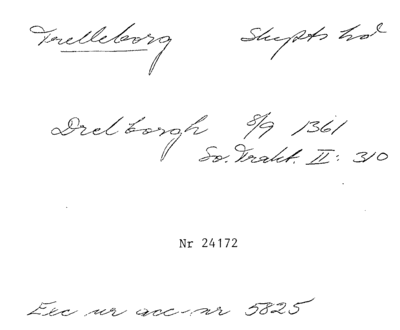 Trelleborg Skytts hd
Drelborgh 8/9 1361
Sv. Trakt. II: 310
Nr 24172
Exc ur acc-nr 5825